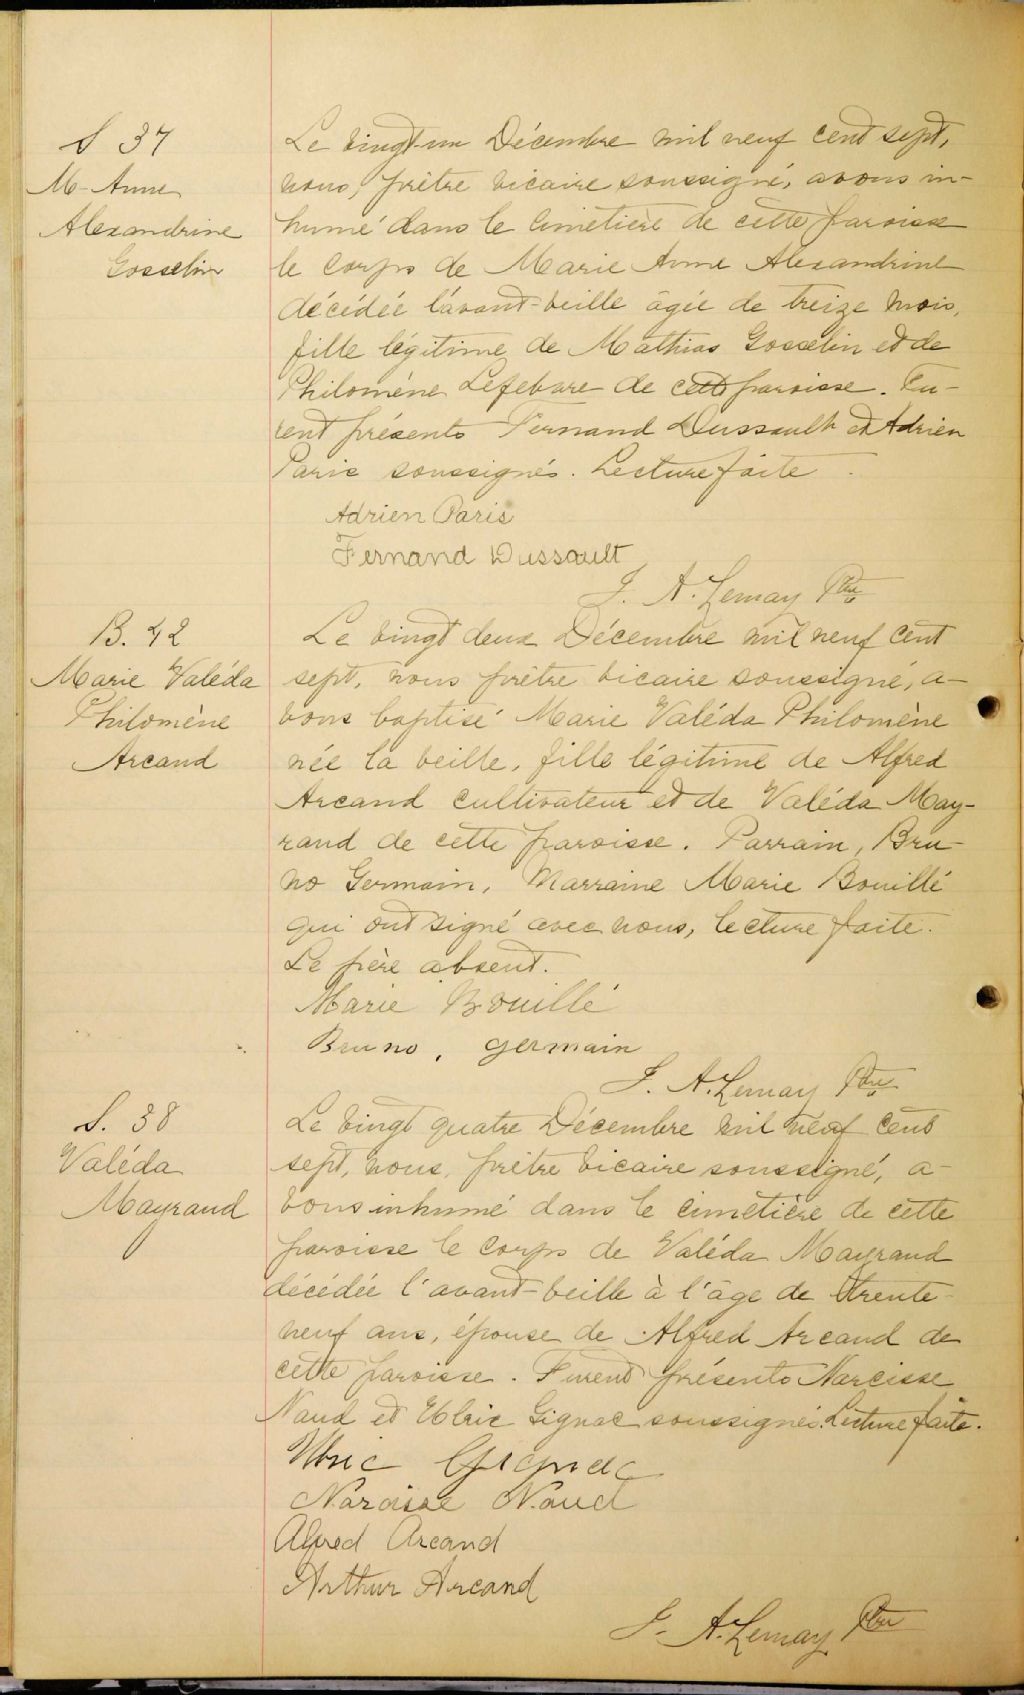 S 37
M-Anne
Alexandrine
Gosselin
Le vingt-un Décembre mil neuf cent sept,
nous, prêtre vicaire soussigné, avons in-
humé dans le cimetière de cette paroisse
le corps de Marie Anne Alexandrine
décédée l'avant-veille âgée de treize mois,
fille légitime de Mathias Gosselin et de
Philomène Lefebvre de cette paroisse. Fu-
rent présents Fernand Dussault et Adrien
Paris soussignés. Lecture faite.
Adrien Paris
Fernand Dussault
J. A. Lemay Ptre
B. 42
Marie Valéda
Philomène
Arcand
Le vingt deux Décembre mil neuf cent
sept, nous prêtre vicaire soussigné, a-
vons baptisé Marie Valéda Philomène
née la veille, fille légitime de Alfred
Arcand cultivateur et de Valéda May-
rand de cette paroisse. Parrain, Bru-
no Germain, Marraine Marie Bouillé
qui ont signé avec nous, lecture faite.
Le père absent.
Marie Bouillé
Bruno, germain
J. A. Lemay Ptre
S. 38
Valéda
Mayrand
Le vingt quatre Décembre mil neuf cent
sept, nous, prêtre vicaire soussigné, a-
vons inhumé dans le cimetière de cette
paroisse le corps de Valéda Mayrand
décédée l'avant-veille à l'âge de trente-
neuf ans, épouse de Alfred Arcand de
cette paroisse. Furent présents Narcisse
Naud et Ulric Gignac soussignés. Lecture faite.
Ulric Gignac
Narcisse Naud
Alfred Arcand
Arthur Arcand
J. A. Lemay Ptre